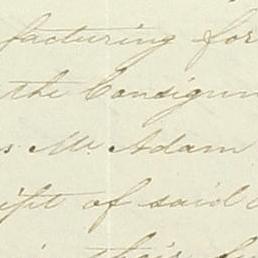 facturing for
the Consignm
s Mr. Adam
ipt of said
their